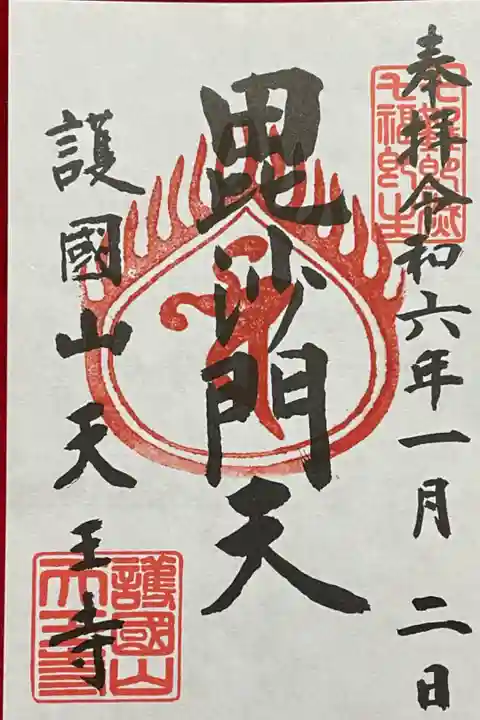 奉拝令和六年一月二日
毘沙門天
護國山天王寺
護國山
天王寺